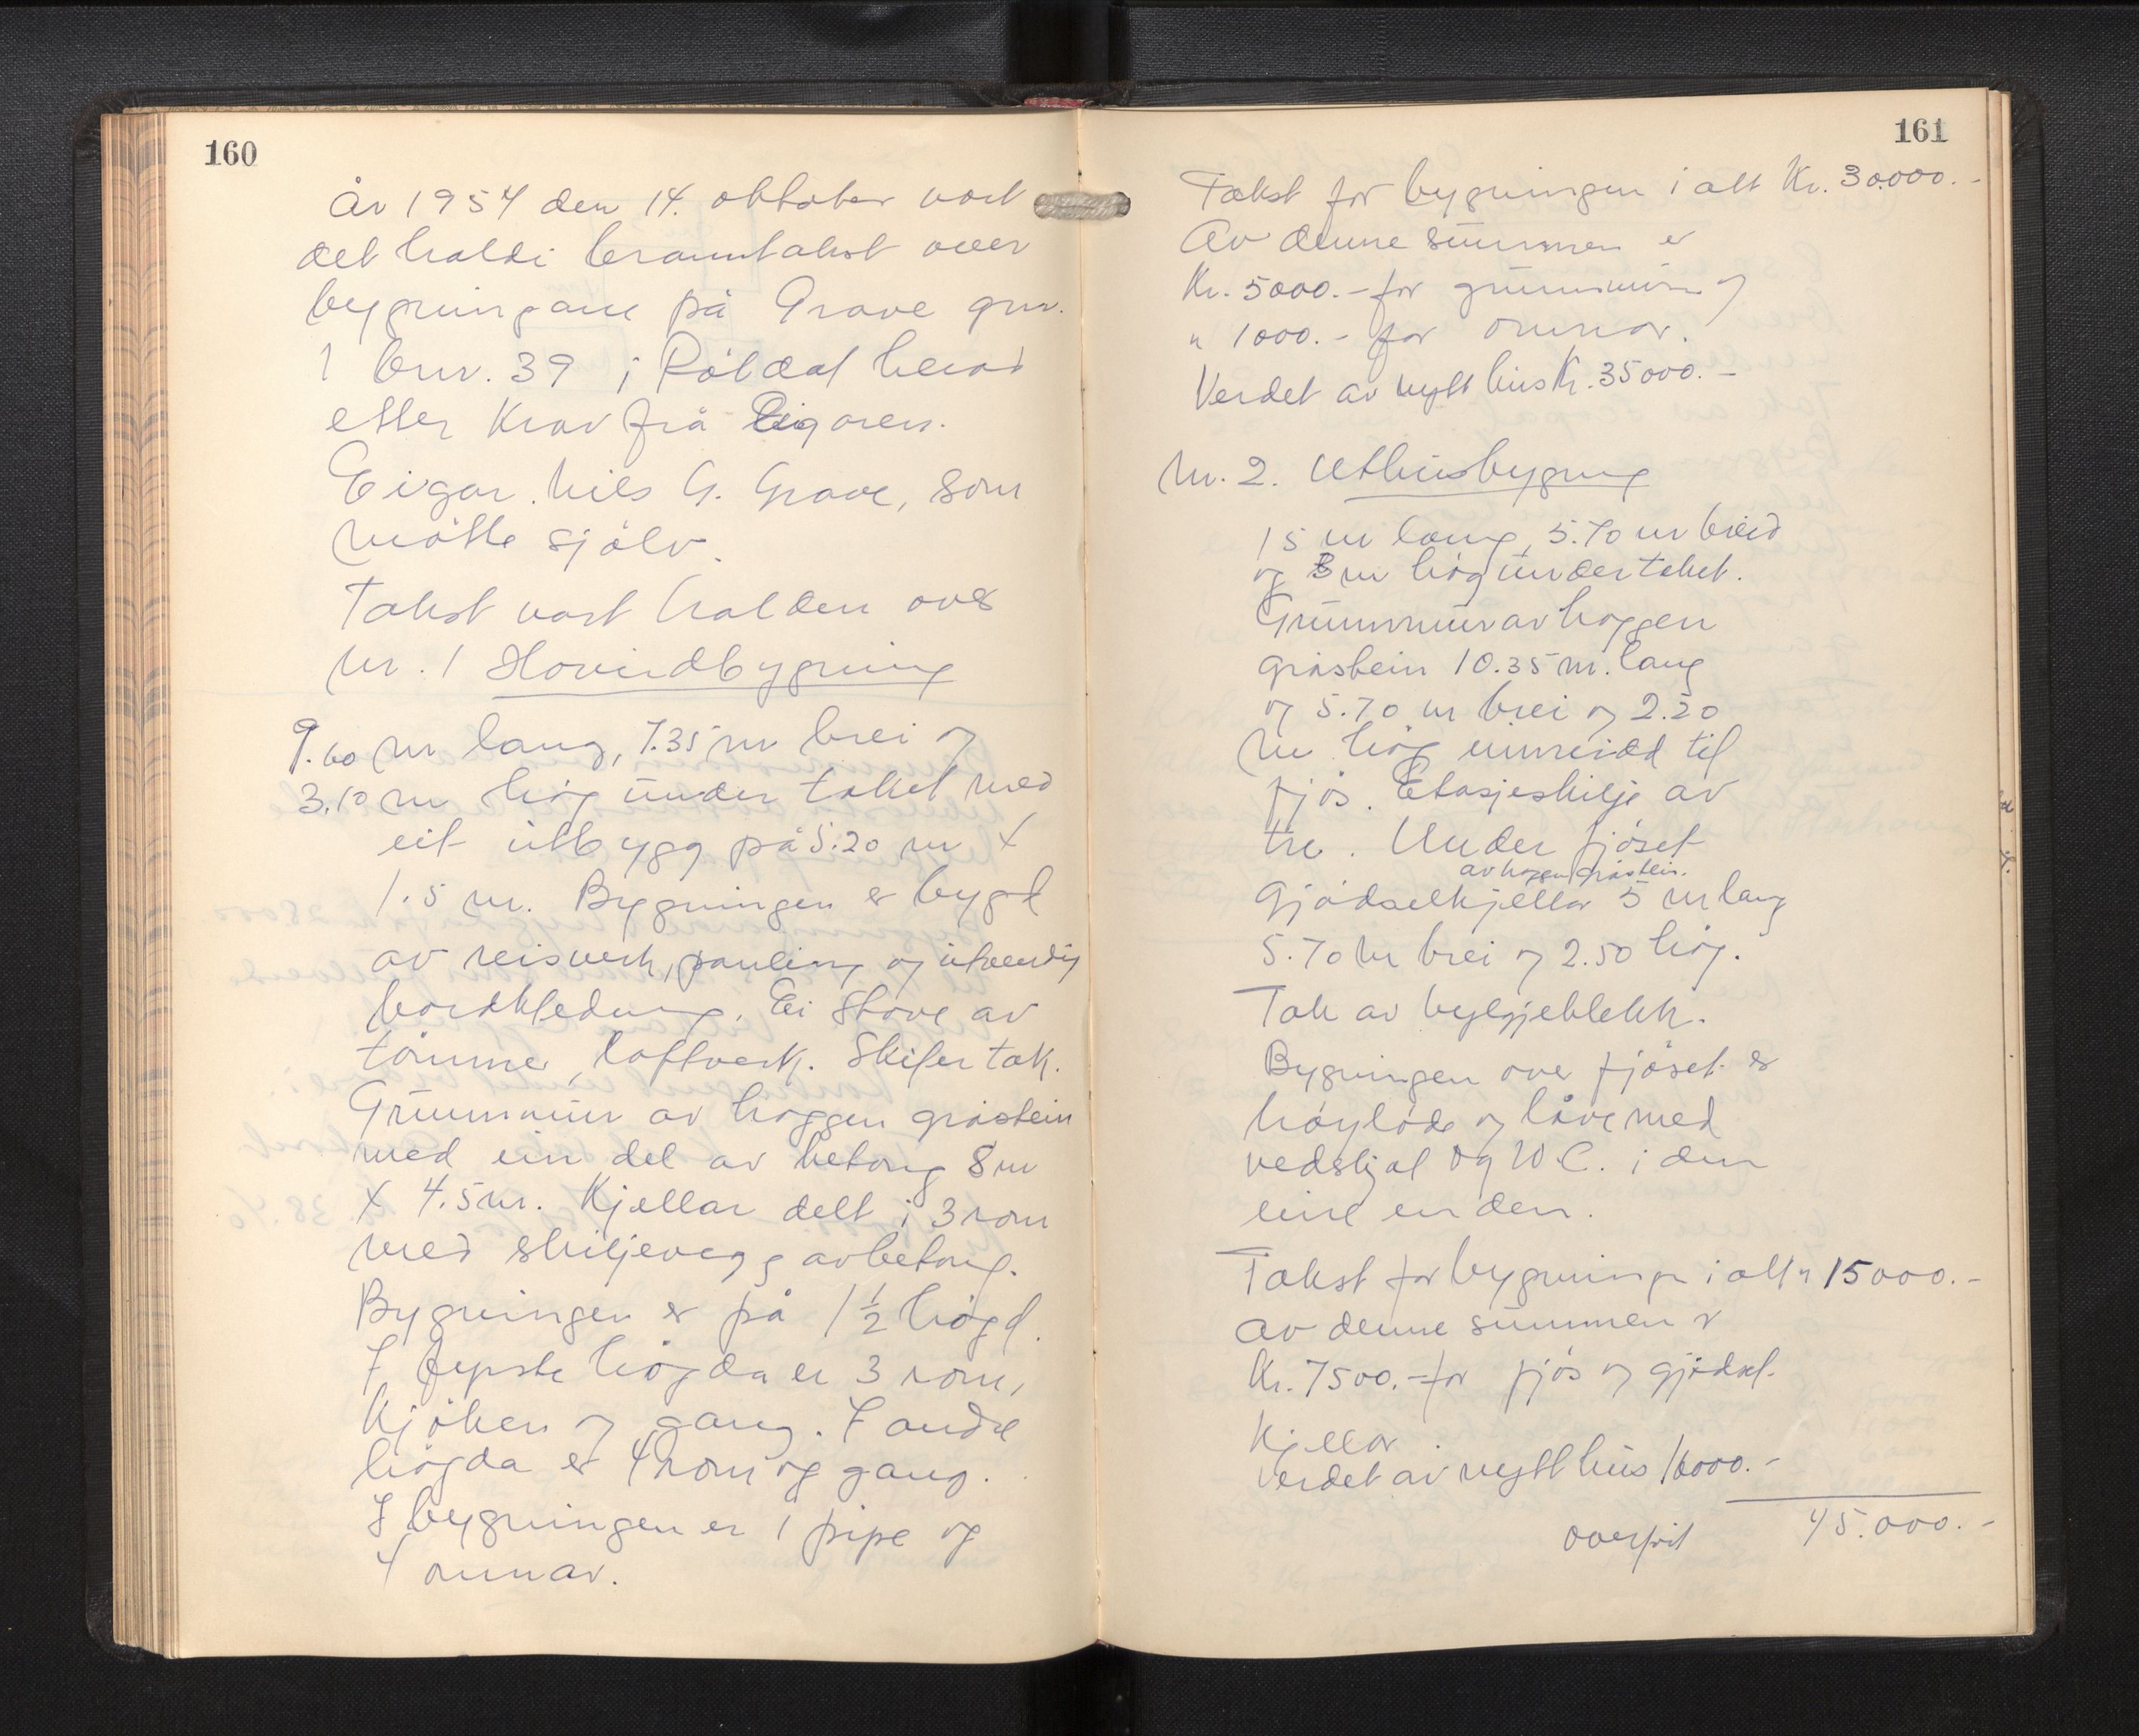 160
År 1954 den 14. oktober vart
det haldi branntakst over
bygningane på Grave gnr.
1 bnr. 39 i Röldal herad
etter Krav frå Eigaren.
Eigar Nils G. Grave, som
mötte sjölv.
Takst vart halden over
Nr. 1 Hovudbygning
9.60 m lang, 7.35 m brei og
3.10 m hög under taket med
eit utbygg på 5.20 m x
1.5 m. Bygningen er bygd
av reisverk, paneling og utvendig
bordkledning. Ei Stove av
tömmer, loftverk. Skifer tak.
Grunnmur av hoggen gråstein
med ein del av betong 8 m
x 4.5 m. Kjellar delt i 3 rom
med skiljevegg av betong.
Bygningen er på 1½ högd.
I fyrste högda er 3 rom,
kjöken og gang. I andre
högda er 4 rom og gang.
I bygningen er 1 pipe og
4 omnar.
161
Takst for bygningen i alt Kr. 30.000.-
Av denne summen er
Kr. 5000.- for grunnmur og
" 1000.- for omnar.
Verdet av nytt hus Kr. 35000.-
Nr. 2. Uthusbygning
15 m lang, 5.70 m breid
og 3 m hög under taket.
Grunnmur av hoggen
gråstein 10.35 m. lang
og 5.70 m brei og 2.20
m hög innreidd til
fjös. Etasjeskilje av
tre. Under fjöset
av hoggen gråstein.
Gjödselkjellar 5 m lang
5.70 m brei og 2.50 hög.
Tak av bylgjeblekk.
Bygningen over fjöset er
höylöde og låve med
vedskjol og W.C. i den
eine enden.
Takst for bygningen i alt " 15000.-
av denne summen er
Kr. 7500.- for fjös og gjödsel-
Kjellar.
Verdet av nytt hus 16000.-
overfört 45.000.-